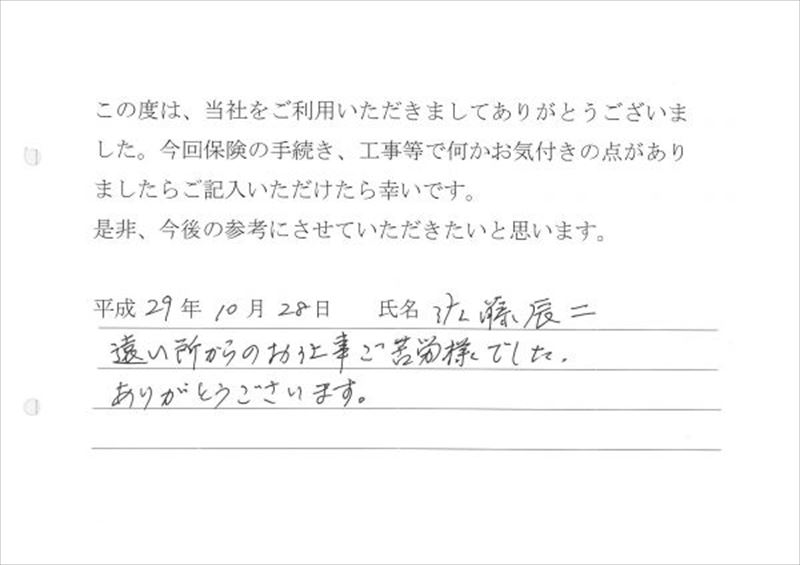 この度は、当社をご利用いただきましてありがとうございま
した。今回保険の手続き、工事等で何かお気付きの点があり
ましたらご記入いただけたら幸いです。
是非、今後の参考にさせていただきたいと思います。
平成 29 年 10 月 28 日 氏名 佐藤辰二
遠い所からのお仕事ご苦労様でした.
ありがとうございます。